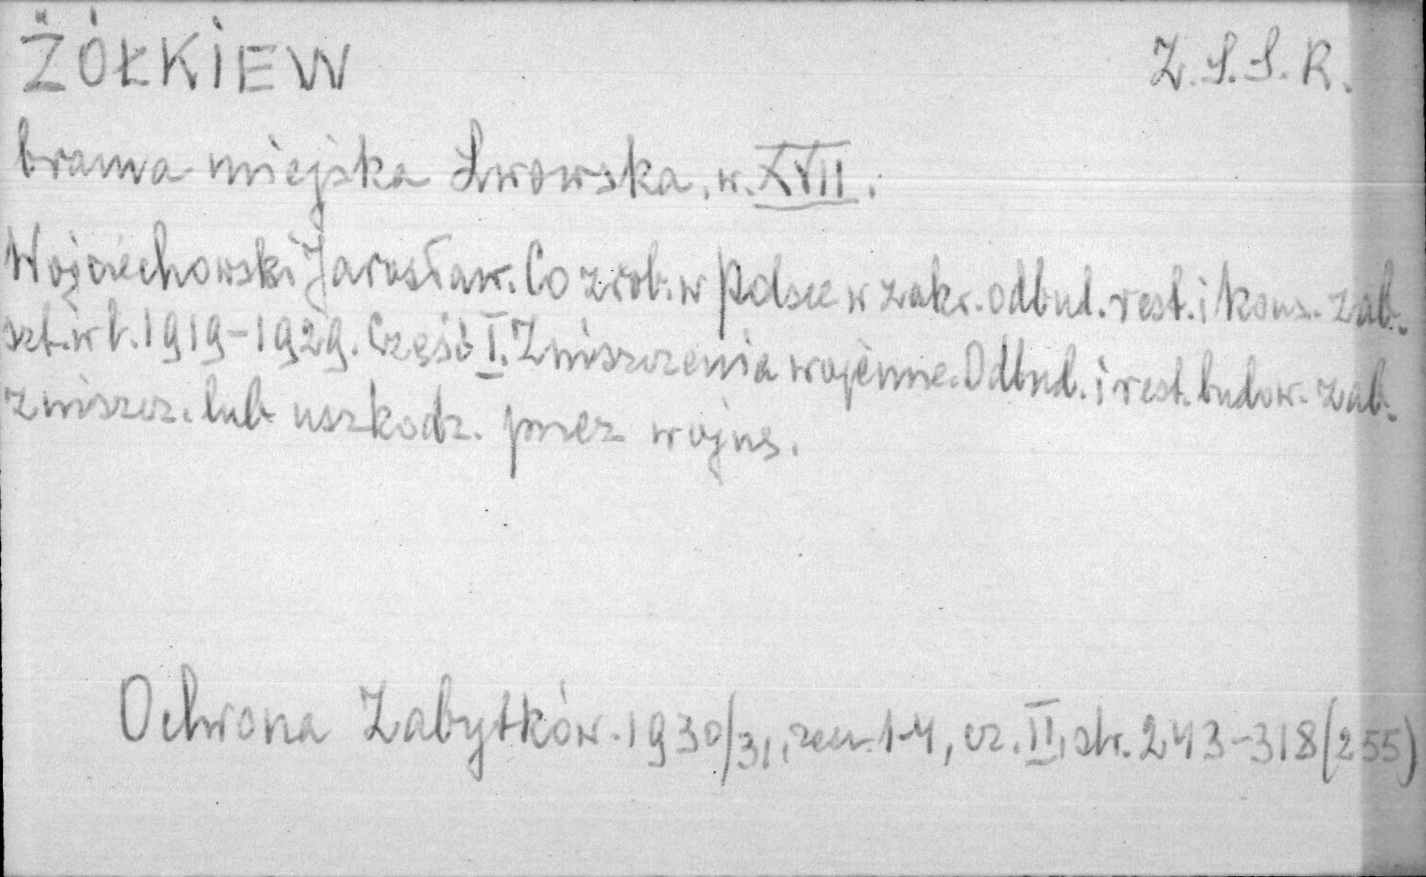 ŻÓŁKIEW Z.S.S.R.
brama miejska Lwowska, w. XVII.
Wojciechowski Jarosław. Co zrob. w Polsce w zakr. odbud. rest. i kons. zab.
szt. w l. 1919-1929. Część I. Zniszczenia wojenne. Odbud. i rest. budow. zab.
zniszcz. lub uszkodz. przez wojnę.
Ochrona Zabytków. 1930/31, zesz. 1-4, cz. II, str. 243-318 (255)